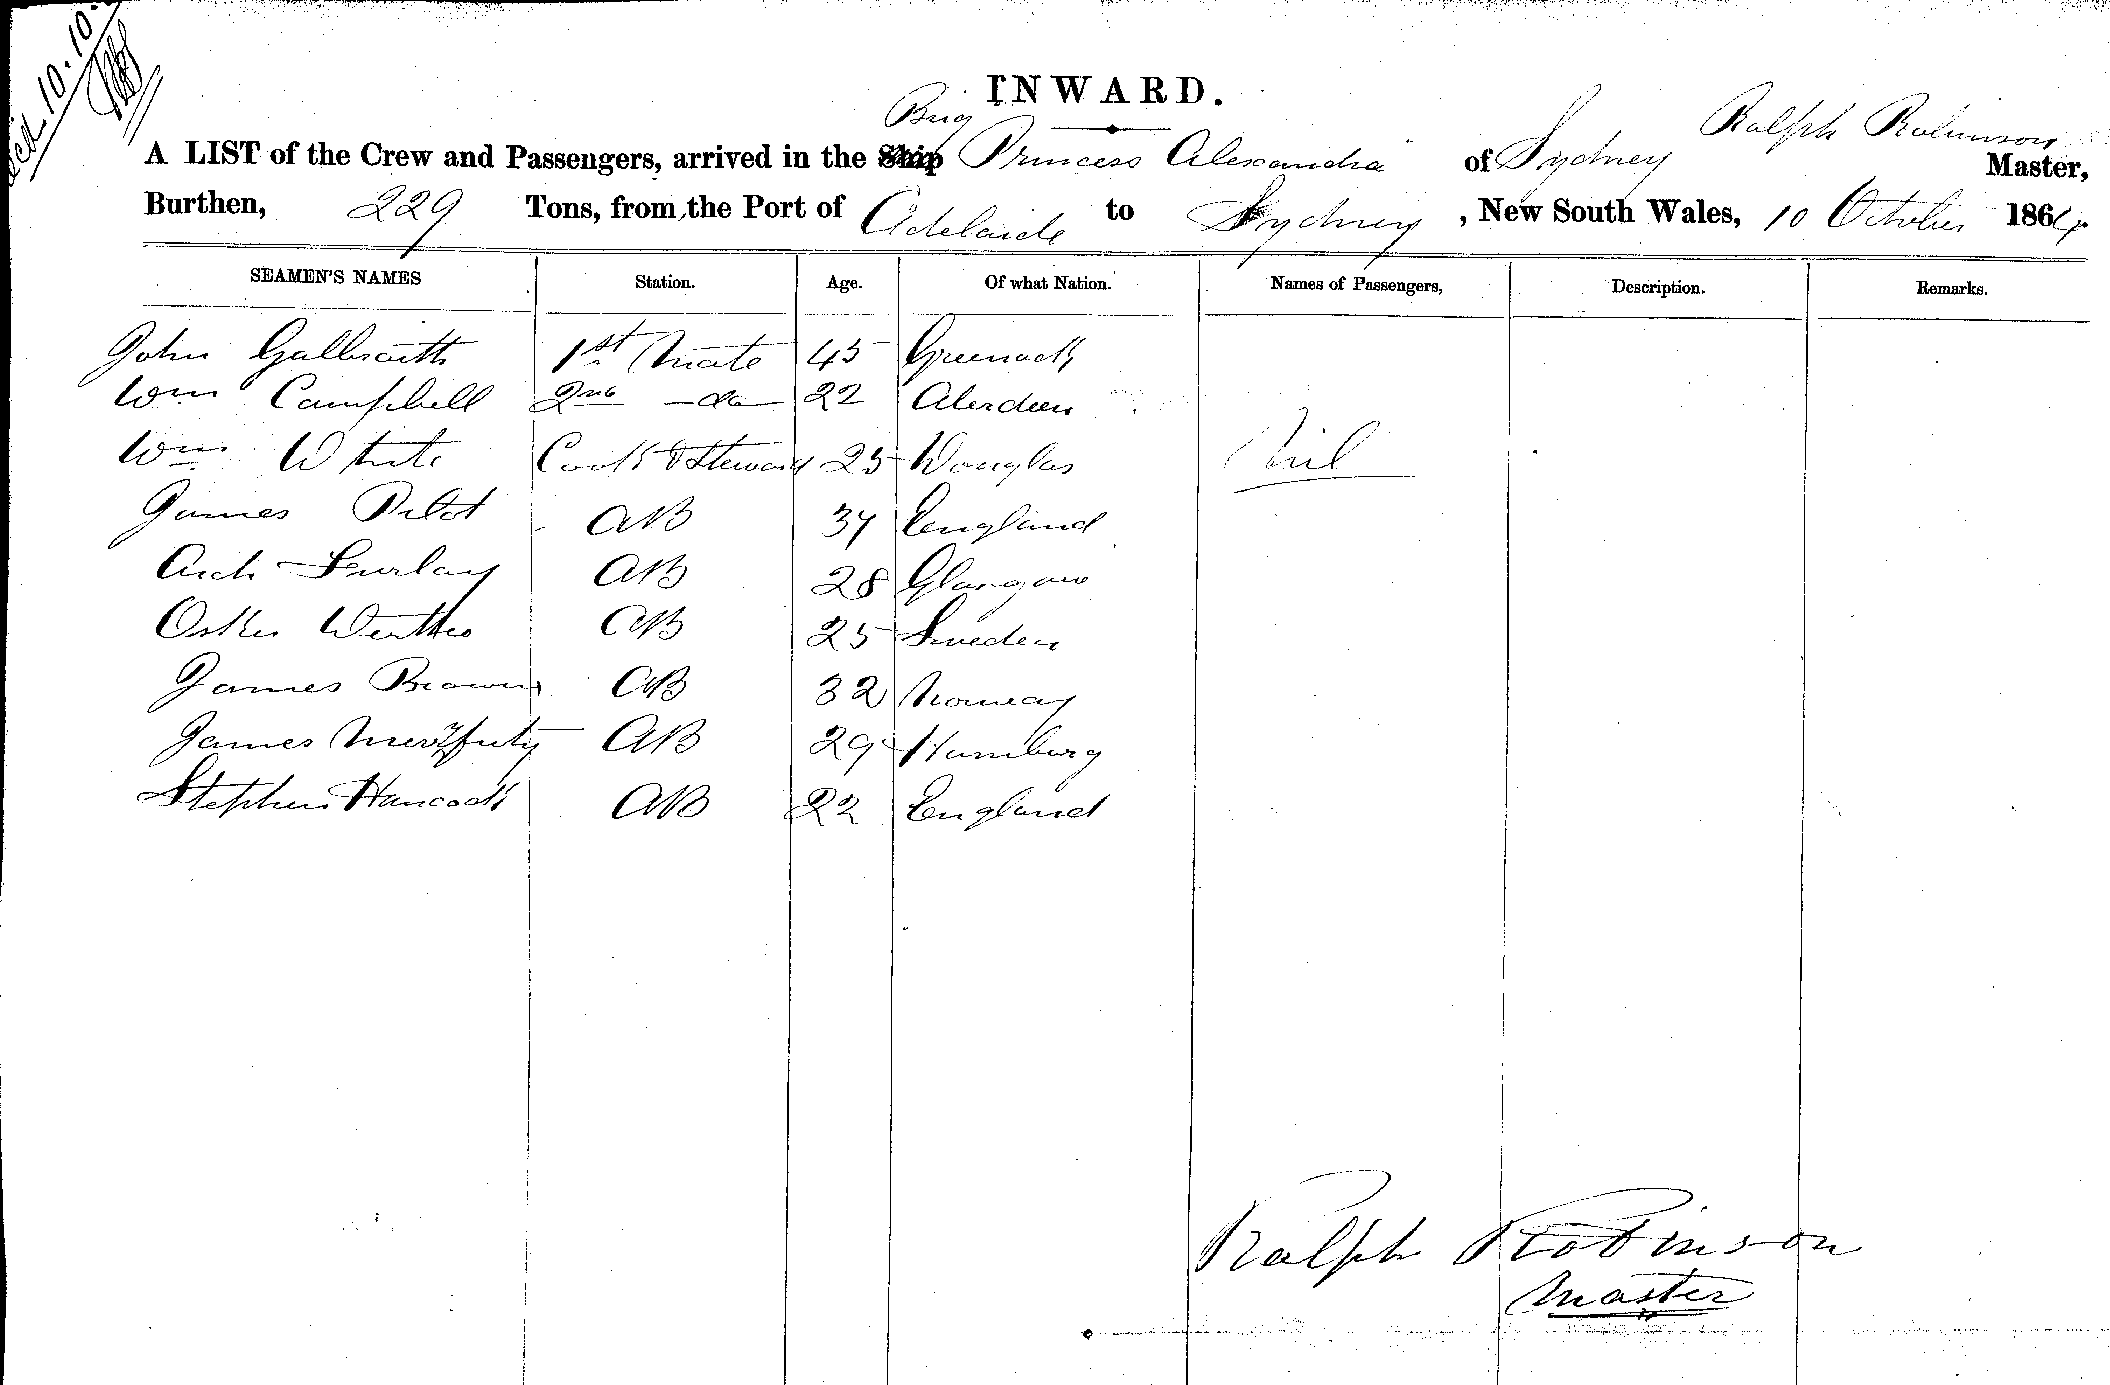 10.10.
INWARD.
Brig
Ralph Robinson
A LIST of the Crew and Passengers, arrived in the Ship Princess Alexandra of Sydney Master,
Burthen, 229 Tons, from the Port of Adelaide to Sydney, New South Wales, 10 October 1864.
SEAMEN'S NAMES Station. Age. Of what Nation. Names of Passengers, Description. Remarks.
John Galbraith 1st Mate 45 Greenock
Wm Campbell 2nd do 22 Aberdeen
Wm White Cook & Steward 25 Douglas Nil
James Pilot AB 37 England
Arch AB 28 Glasgow
Oskar AB 25 Sweden
James Brown AB 32 Norway
James AB 29 Hamburg
Stephen Hancock AB 22 England
Ralph Robinson
Master